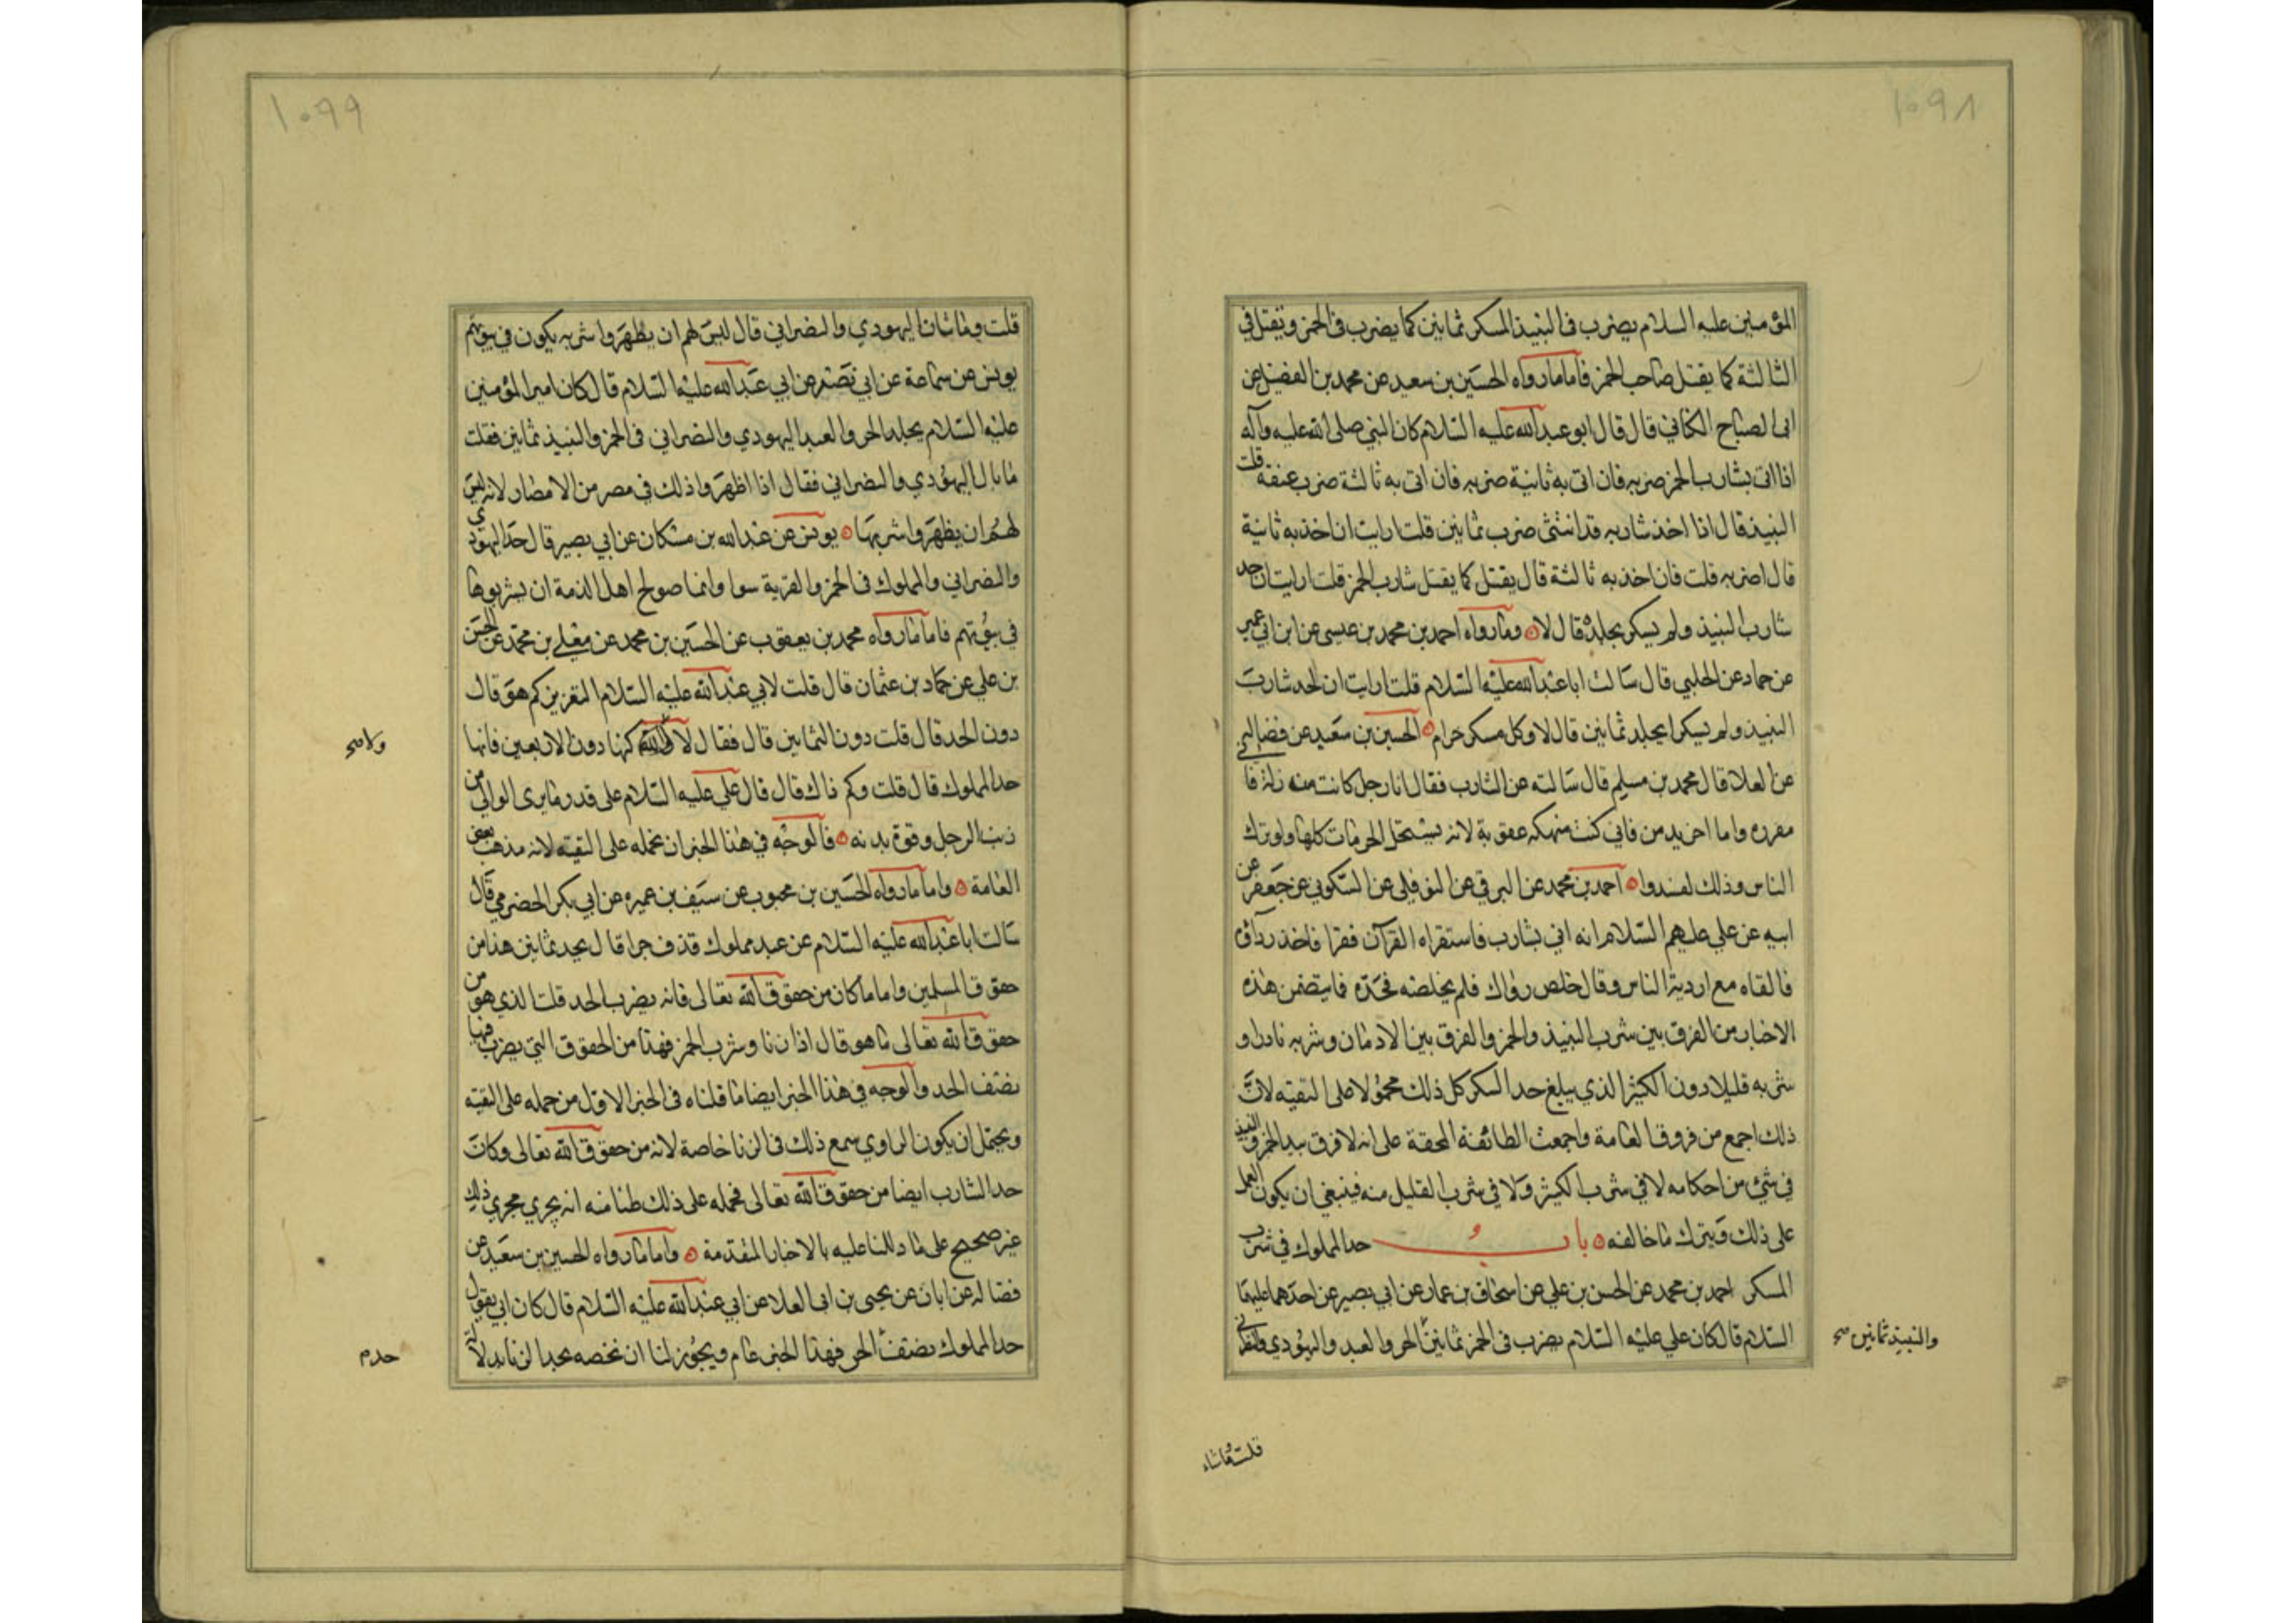 ١٠٩٨
المؤمنين عليه السلام يضرب في النبيذ المسكر ثمانين كما يضرب في الخمر ويقتل في
الثالثة كما يقتل صاحب الخمر فاما ما رواه الحسين بن سعيد عن محمد بن الفضيل عن
ابي الصباح الكناني قال قال ابو عبد الله عليه السلام كان النبي صلى الله عليه وآله
اذا اتى بشارب الخمر ضربه فان اتى به ثانية ضربه فان اتى به ثالثة ضرب عنقه قلت
النبيذ قال اذا اخذ شاربه قد انتشى ضرب ثمانين قلت ارايت ان اخذ به ثانية
قال اضربه قلت فان اخذ به ثالثة قال يقتل كما يقتل شارب الخمر قلت ارايت ان اخذ
شارب النبيذ ولم يسكر يجلد قال لا وما رواه احمد بن محمد بن عيسى عن ابن ابي عمير
عن حماد عن الحلبي قال سالت ابا عبد الله عليه السلام قلت ارايت ان اخذ شارب
النبيذ ولم يسكر ايجلد ثمانين قال لا وكل مسكر حرام الحسين بن سعيد عن فضالة
عن العلا قال محمد بن مسلم قال سالته عن الشارب فقال انا رجل كانت منه زلة فا
معزره واما اخر يدمن فاني كنت منهكه عقوبة لانه يستحل الحرمات كلها ولو ترك
الناس وذلك لفسدوا احمد بن محمد عن البرقي عن النوفلي عن السكوني عن جعفر عن
ابيه عن علي عليهم السلام انه اتي بشارب فاستقراه القرآن فقرا فاخذ رداؤه
فالقاه مع اردية الناس وقال خلص رداك فلم يخلصه فحده فما يتضمن هذه
الاخبار من الفرق بين شرب النبيذ والخمر والفرق بين الادمان وشربه نادرا و
شربه قليلا دون الكثير الذي يبلغ حد السكر كل ذلك محمولا على التقيه لان
ذلك اجمع من فروق العامة واجمعت الطائفة المحقة على انه لا فرق بين الخمر والنبيذ
في شيء من احكامه لا في شرب الكثير ولا في شرب القليل منه فينبغي ان يكون العمل
على ذلك ويترك ما خالفه باب حد المملوك في شرب
المسكر احمد بن محمد عن الحسن بن علي عن اسحاق بن عمار عن ابي بصير عن احدهما عليهما
السلام قال كان علي عليه السلام يضرب في الخمر ثمانين الحر والعبد واليهودي والنصراني
والنبيذ ثمانين صح
قلت وما شان
١٠٩٩
قلت وما شان اليهودي والنصراني قال ليس لهم ان يظهروا شربه يكون في بيوتهم
يونس عن سماعة عن ابي بصير عن ابي عبد الله عليه السلام قال كان امير المؤمنين
عليه السلام يجلد الحر والعبد اليهودي والنصراني في الخمر والنبيذ ثمانين فقلت
ما بال اليهودي والنصراني فقال اذا اظهروا ذلك في مصر من الامصار لانه ليس
لهم ان يظهروا شربها يونس عن عبد الله بن مسكان عن ابي بصير قال حد اليهودي
والنصراني والمملوك في الخمر والفرية سوا وانما صولح اهل الذمة ان يشربوها
في بيوتهم فاما ما رواه محمد بن يعقوب عن الحسين بن محمد عن معلى بن محمد عن الحسن
بن علي عن حماد بن عثمان قال قلت لابي عبد الله عليه السلام التعزير كم هو قال
دون الحد قال قلت دون الثمانين قال فقال لا والله كنها دون الاربعين فانها
ولا صح
حد المملوك قال قلت وكم ذاك قال قال علي عليه السلام على قدر ما يرى الوالي من
ذنب الرجل وقوة بدنه فالوجه في هذا الخبر ان نحمله على التقيه لانه مذهب بعض
العامة واما ما رواه الحسين بن محبوب عن سيف بن عميره عن ابي بكر الحضرمي قال
سالت ابا عبد الله عليه السلام عن عبد مملوك قذف حرا قال يحد ثمانين هذا من
حقوق المسلمين واما ما كان من حقوق الله تعالى فانه يضرب الحد قلت الذي هو من
حقوق الله تعالى ما هو قال اذا زنا وشرب الخمر فهذا من الحقوق التي يضرب فيها
نصف الحد والوجه في هذا الخبر ايضا ما قلناه في الخبر الاول من حمله على التقيه
ويحتمل ان يكون الراوي سمع ذلك في الزنا خاصة لانه من حقوق الله تعالى وكان
حد الشارب ايضا من حقوق الله تعالى فحمله على ذلك ظنا منه انه يجري مجرى ذلك
غير صحيح على ما دللنا عليه بالاخبار المتقدمة واما ما رواه الحسين بن سعيد عن
فضاله عن ابان عن يحيى بن ابي العلا عن ابي عبد الله عليه السلام قال كان ابي يقول
حد المملوك نصف الحر فهذا الخبر عام ويجوز لنا ان نخصه بحد الزنا بدلالة
حد م